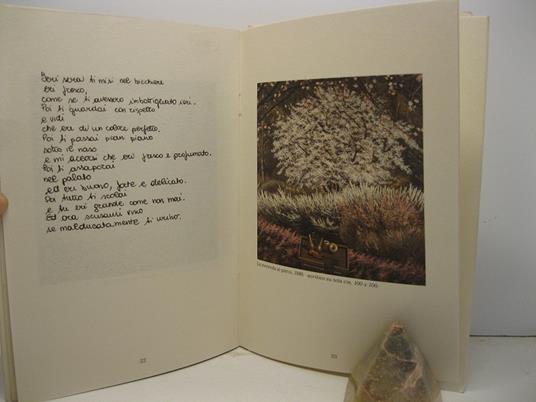 Ieri sera ti misi nel bicchiere
eri fresco,
come se ti avessero imbottigliato ieri.
Poi ti guardai con rispetto
e vidi
che eri di un colore perfetto.
Poi ti passai pian piano
sotto il naso
e mi accorsi che eri fresco e profumato.
Poi ti assaporai
nel palato
ed eri buono, forte e delicato.
Poi tutto ti scolai
e tu eri grande come non mai.
Ed ora scusami vino
se maleducatamente ti urino.
22
acrilico su tela cm. 100 x 100.
23